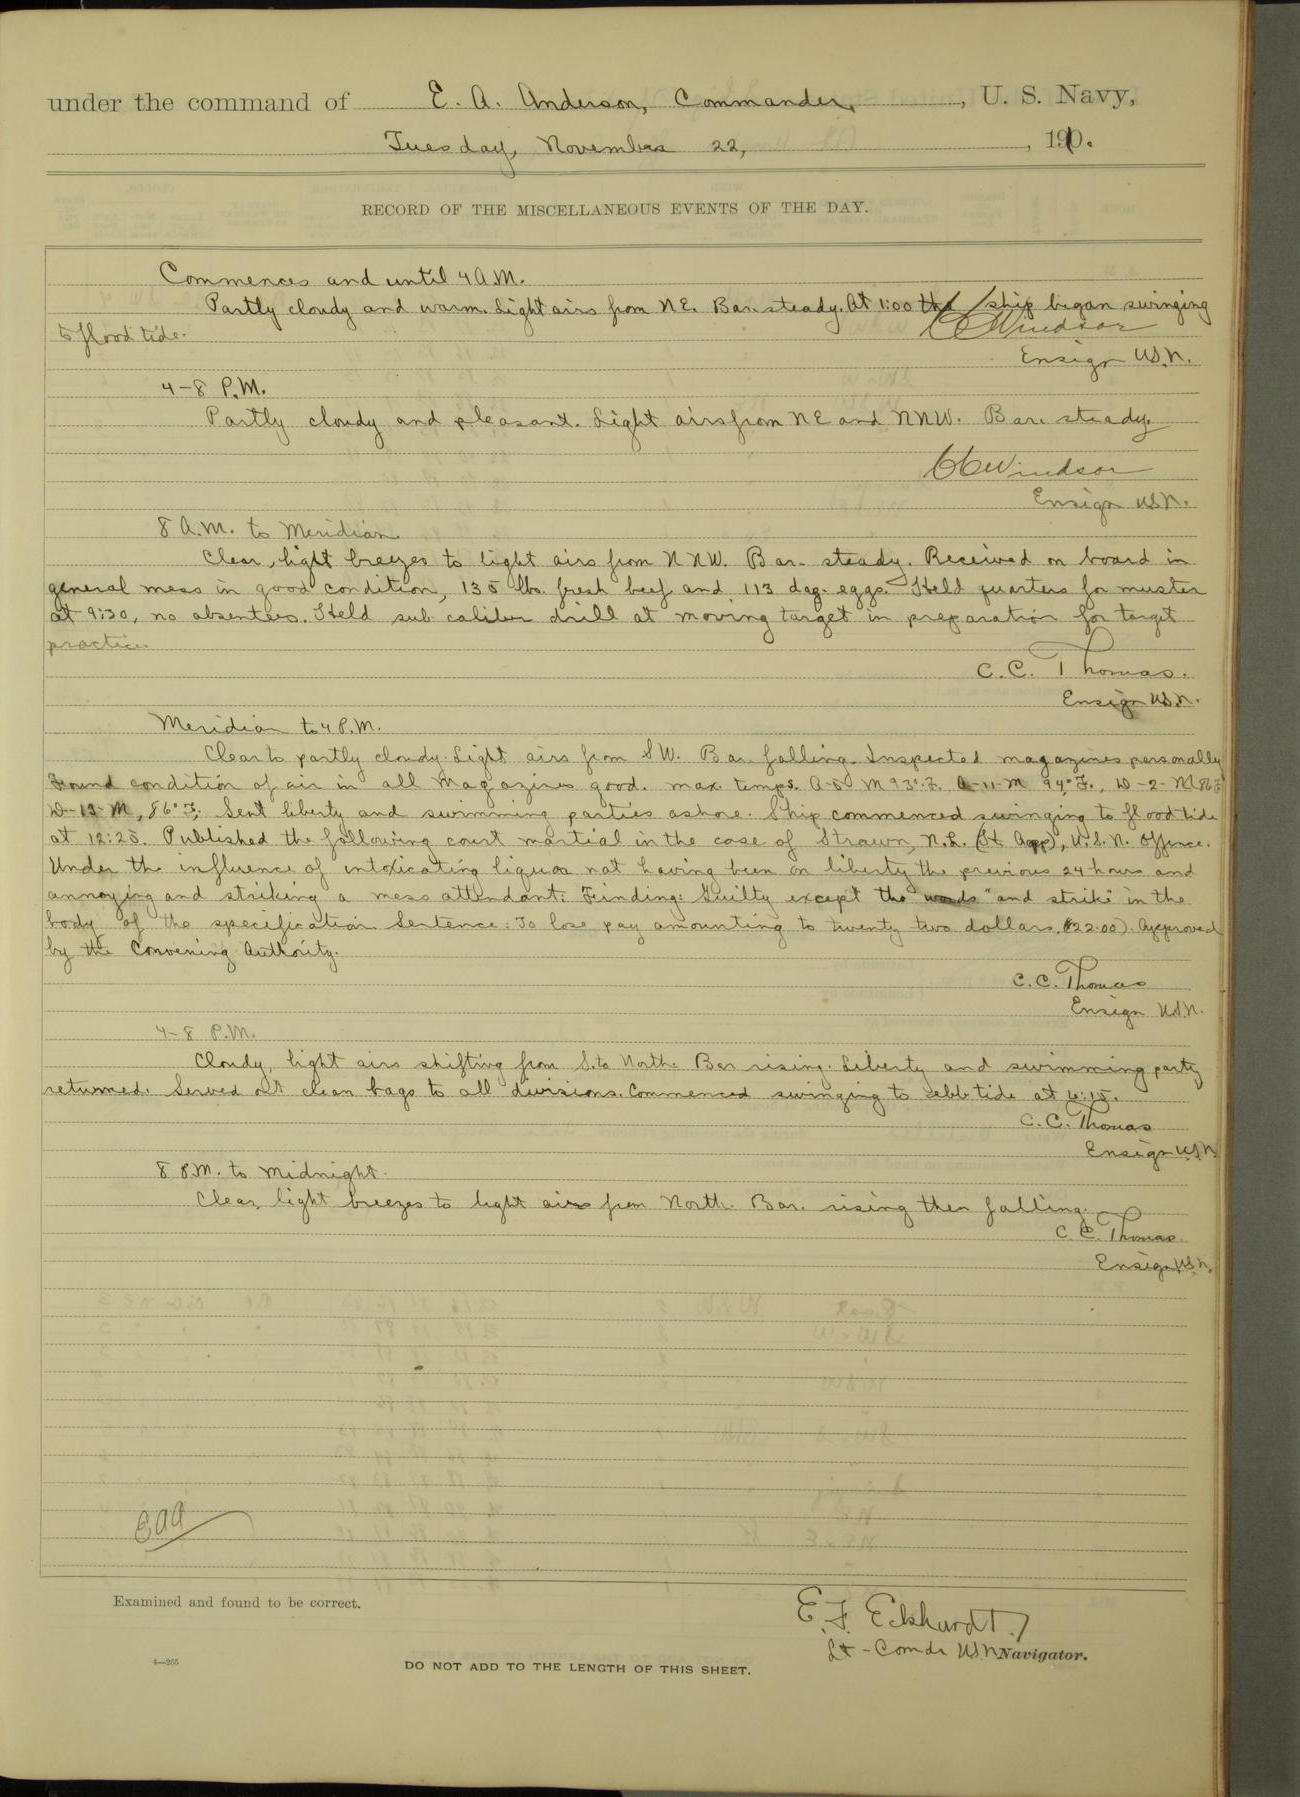 under the command of E. A. Anderson, Commander, , U. S. Navy,
Tuesday, November 22, , 1910.
RECORD OF THE MISCELLANEOUS EVENTS OF THE DAY.
Commences and until 4 A.M.
Partly cloudy and warm. Light airs from NE. Bar. steady. At 1:00 the ship began swinging
to flood tide.
CC Windsor
Ensign U.S.N.
4-8 P.M.
Partly cloudy and pleasant. Light airs from NE and NNW. Bar. steady.
CC Windsor
Ensign U.S.N.
8 A.M. to Meridian.
Clear, light breezes to light airs from NNW. Bar. steady. Received on board in
general mess in good condition, 135 lbs. fresh beef and 113 doz. eggs. Held quarters for muster
at 9:30, no absentees. Held sub caliber drill at moving target in preparation for target
practice
C. C. Thomas.
Ensign U.S.N.
Meridian to 4 P.M.
Clear to partly cloudy. Light airs from SW. Bar falling. Inspected magazines personally
Found condition of air in all Magazines good. max temps. A-5 M 93° F. A-11-M 94° F., D-2-M 86° F
D-13 M, 86° F. Sent liberty and swimming parties ashore. Ship commenced swinging to flood tide
at 12:25. Published the following court martial in the case of Strawn, N.L. (St. App), U.S.N. Offence.
Under the influence of intoxicating liquor not having been on liberty the previous 24 hours and
annoying and striking a mess attendant: Finding: Guilty except the words "and strike" in the
body of the specification. Sentence: To lose pay amounting to twenty two dollars. ($22.00). Approved
by the Convening Authority.
C. C. Thomas
Ensign U.S.N.
4-8 P.M.
Cloudy, light airs shifting from S. to North. Bar rising. Liberty and swimming party
returned. Served out clean bags to all divisions. Commenced swinging to ebb tide at 6:15.
C. C. Thomas
Ensign U.S.N.
8 P.M. to Midnight.
Clear, light breezes to light airs from North. Bar. rising then falling.
C. C. Thomas
Ensign U.S.N.
EAA
Examined and found to be correct.
E. F. Eckhardt
Lt-Comdr USN Navigator.
4—265
DO NOT ADD TO THE LENGTH OF THIS SHEET.